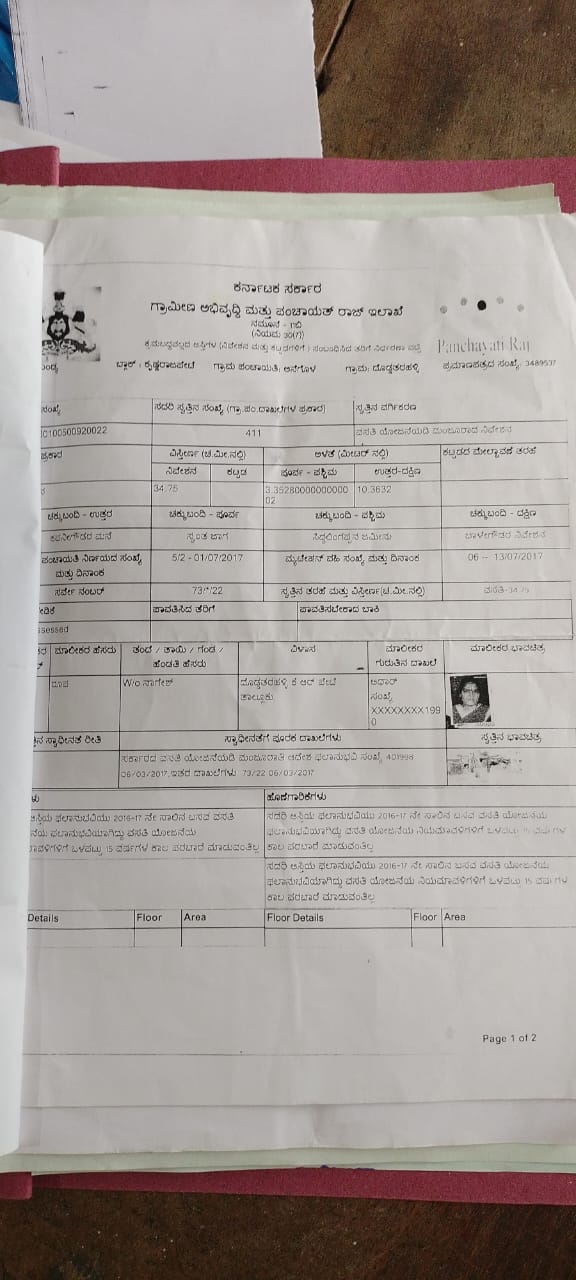 ಕರ್ನಾಟಕ ಸರ್ಕಾರ
ಗ್ರಾಮೀಣ ಅಭಿವೃದ್ಧಿ ಮತ್ತು ಪಂಚಾಯತ್ ರಾಜ್ ಇಲಾಖೆ
ನಮೂನೆ - 11ಬಿ
(ನಿಯಮ 30(7))
Panchayati Raj
ಬ್ಲಾಕ್ : ಕೃಷ್ಣರಾಜಪೇಟೆ ಗ್ರಾಮ ಪಂಚಾಯತಿ: ಆನೆಗೊಳ ಗ್ರಾಮ: ದೊಡ್ಡತರಹಳ್ಳಿ ಪ್ರಮಾಣಪತ್ರದ ಸಂಖ್ಯೆ: 3489537
ಸಂಖ್ಯೆ ಸದರಿ ಸ್ವತ್ತಿನ ಸಂಖ್ಯೆ (ಗ್ರಾ.ಪಂ.ದಾಖಲೆಗಳ ಪ್ರಕಾರ) ಸ್ವತ್ತಿನ ವರ್ಗೀಕರಣ
0100500920022 411 ವಸತಿ ಯೋಜನೆಯಡಿ ಮಂಜೂರಾದ ನಿವೇಶನ
ಪ್ರಕಾರ ವಿಸ್ತೀರ್ಣ (ಚ.ಮೀ.ನಲ್ಲಿ) ಅಳತೆ (ಮೀಟರ್ ನಲ್ಲಿ) ಕಟ್ಟಡದ ಮೇಲ್ಛಾವಣಿ ತರಹೆ
ನಿವೇಶನ ಕಟ್ಟಡ ಪೂರ್ವ - ಪಶ್ಚಿಮ ಉತ್ತರ-ದಕ್ಷಿಣ
34.75 3.35280000000000 10.3632
02
ಚಕ್ಕುಬಂದಿ - ಉತ್ತರ ಚಕ್ಕುಬಂದಿ - ಪೂರ್ವ ಚಕ್ಕುಬಂದಿ - ಪಶ್ಚಿಮ ಚಕ್ಕುಬಂದಿ - ದಕ್ಷಿಣ
ಸ್ವಂತ ಜಾಗ ಸಿದ್ದಲಿಂಗಪ್ಪನ ಜಮೀನು ಬಾಳೇಗೌಡರ ನಿವೇಶನ
ಪಂಚಾಯತಿ ನಿರ್ಣಯದ ಸಂಖ್ಯೆ 5/2 - 01/07/2017 ಮ್ಯುಟೇಶನ್ ವಹಿ ಸಂಖ್ಯೆ ಮತ್ತು ದಿನಾಂಕ 06 -- 13/07/2017
ಮತ್ತು ದಿನಾಂಕ
ಸರ್ವೇ ನಂಬರ್ 73/*/22 ಸ್ವತ್ತಿನ ತರಹೆ ಮತ್ತು ವಿಸ್ತೀರ್ಣ(ಚ.ಮೀ.ನಲ್ಲಿ) ವಸತಿ-34.75
ಪಾವತಿಸಿದ ತೆರಿಗೆ ಪಾವತಿಸಬೇಕಾದ ಬಾಕಿ
ssessed
ಮಾಲೀಕರ ಹೆಸರು ತಂದೆ / ತಾಯಿ / ಗಂಡ / ವಿಳಾಸ ಮಾಲೀಕರ ಮಾಲೀಕರ ಭಾವಚಿತ್ರ
ಹೆಂಡತಿ ಹೆಸರು ಗುರುತಿನ ದಾಖಲೆ
ರೂಪ W/o ನಾಗೇಶ್ ದೊಡ್ಡತರಹಳ್ಳಿ ಕೆ ಆರ್ ಪೇಟೆ ಆಧಾರ್
ತಾಲ್ಲೂಕು ಸಂಖ್ಯೆ
XXXXXXXX199
0
ಸ್ವಾಧೀನತೆ ರೀತಿ ಸ್ವಾಧೀನತೆಗೆ ಪೂರಕ ದಾಖಲೆಗಳು ಸ್ವತ್ತಿನ ಭಾವಚಿತ್ರ
ಸರ್ಕಾರದ ವಸತಿ ಯೋಜನೆಯಡಿ ಮಂಜೂರಾತಿ ಆದೇಶ ಫಲಾನುಭವಿ ಸಂಖ್ಯೆ 401998
06/03/2017,ಇತರ ದಾಖಲೆಗಳು 73/22 06/03/2017
ಹೊಣೆಗಾರಿಕೆಗಳು
ಆಸ್ತಿಯ ಫಲಾನುಭವಿಯು 2016-17 ನೇ ಸಾಲಿನ ಬಸವ ವಸತಿ
ಫಲಾನುಭವಿಯಾಗಿದ್ದು ವಸತಿ ಯೋಜನೆಯ
ಒಳಪಟ್ಟು 15 ವರ್ಷಗಳ ಕಾಲ ಪರಬಾರೆ ಮಾಡುವಂತಿಲ್ಲ
ಸದರಿ ಆಸ್ತಿಯ ಫಲಾನುಭವಿಯು 2016-17 ನೇ ಸಾಲಿನ ಬಸವ ವಸತಿ ಯೋಜನೆಯ
ಫಲಾನುಭವಿಯಾಗಿದ್ದು ವಸತಿ ಯೋಜನೆಯ ನಿಯಮಾವಳಿಗಳಿಗೆ ಒಳಪಟ್ಟು 15 ವರ್ಷಗಳ
ಕಾಲ ಪರಬಾರೆ ಮಾಡುವಂತಿಲ್ಲ
ಸದರಿ ಆಸ್ತಿಯ ಫಲಾನುಭವಿಯು 2016-17 ನೇ ಸಾಲಿನ ಬಸವ ವಸತಿ ಯೋಜನೆಯ
ಫಲಾನುಭವಿಯಾಗಿದ್ದು ವಸತಿ ಯೋಜನೆಯ ನಿಯಮಾವಳಿಗಳಿಗೆ ಒಳಪಟ್ಟು 15 ವರ್ಷಗಳ
ಕಾಲ ಪರಬಾರೆ ಮಾಡುವಂತಿಲ್ಲ
Details Floor Area Floor Details Floor Area
Page 1 of 2